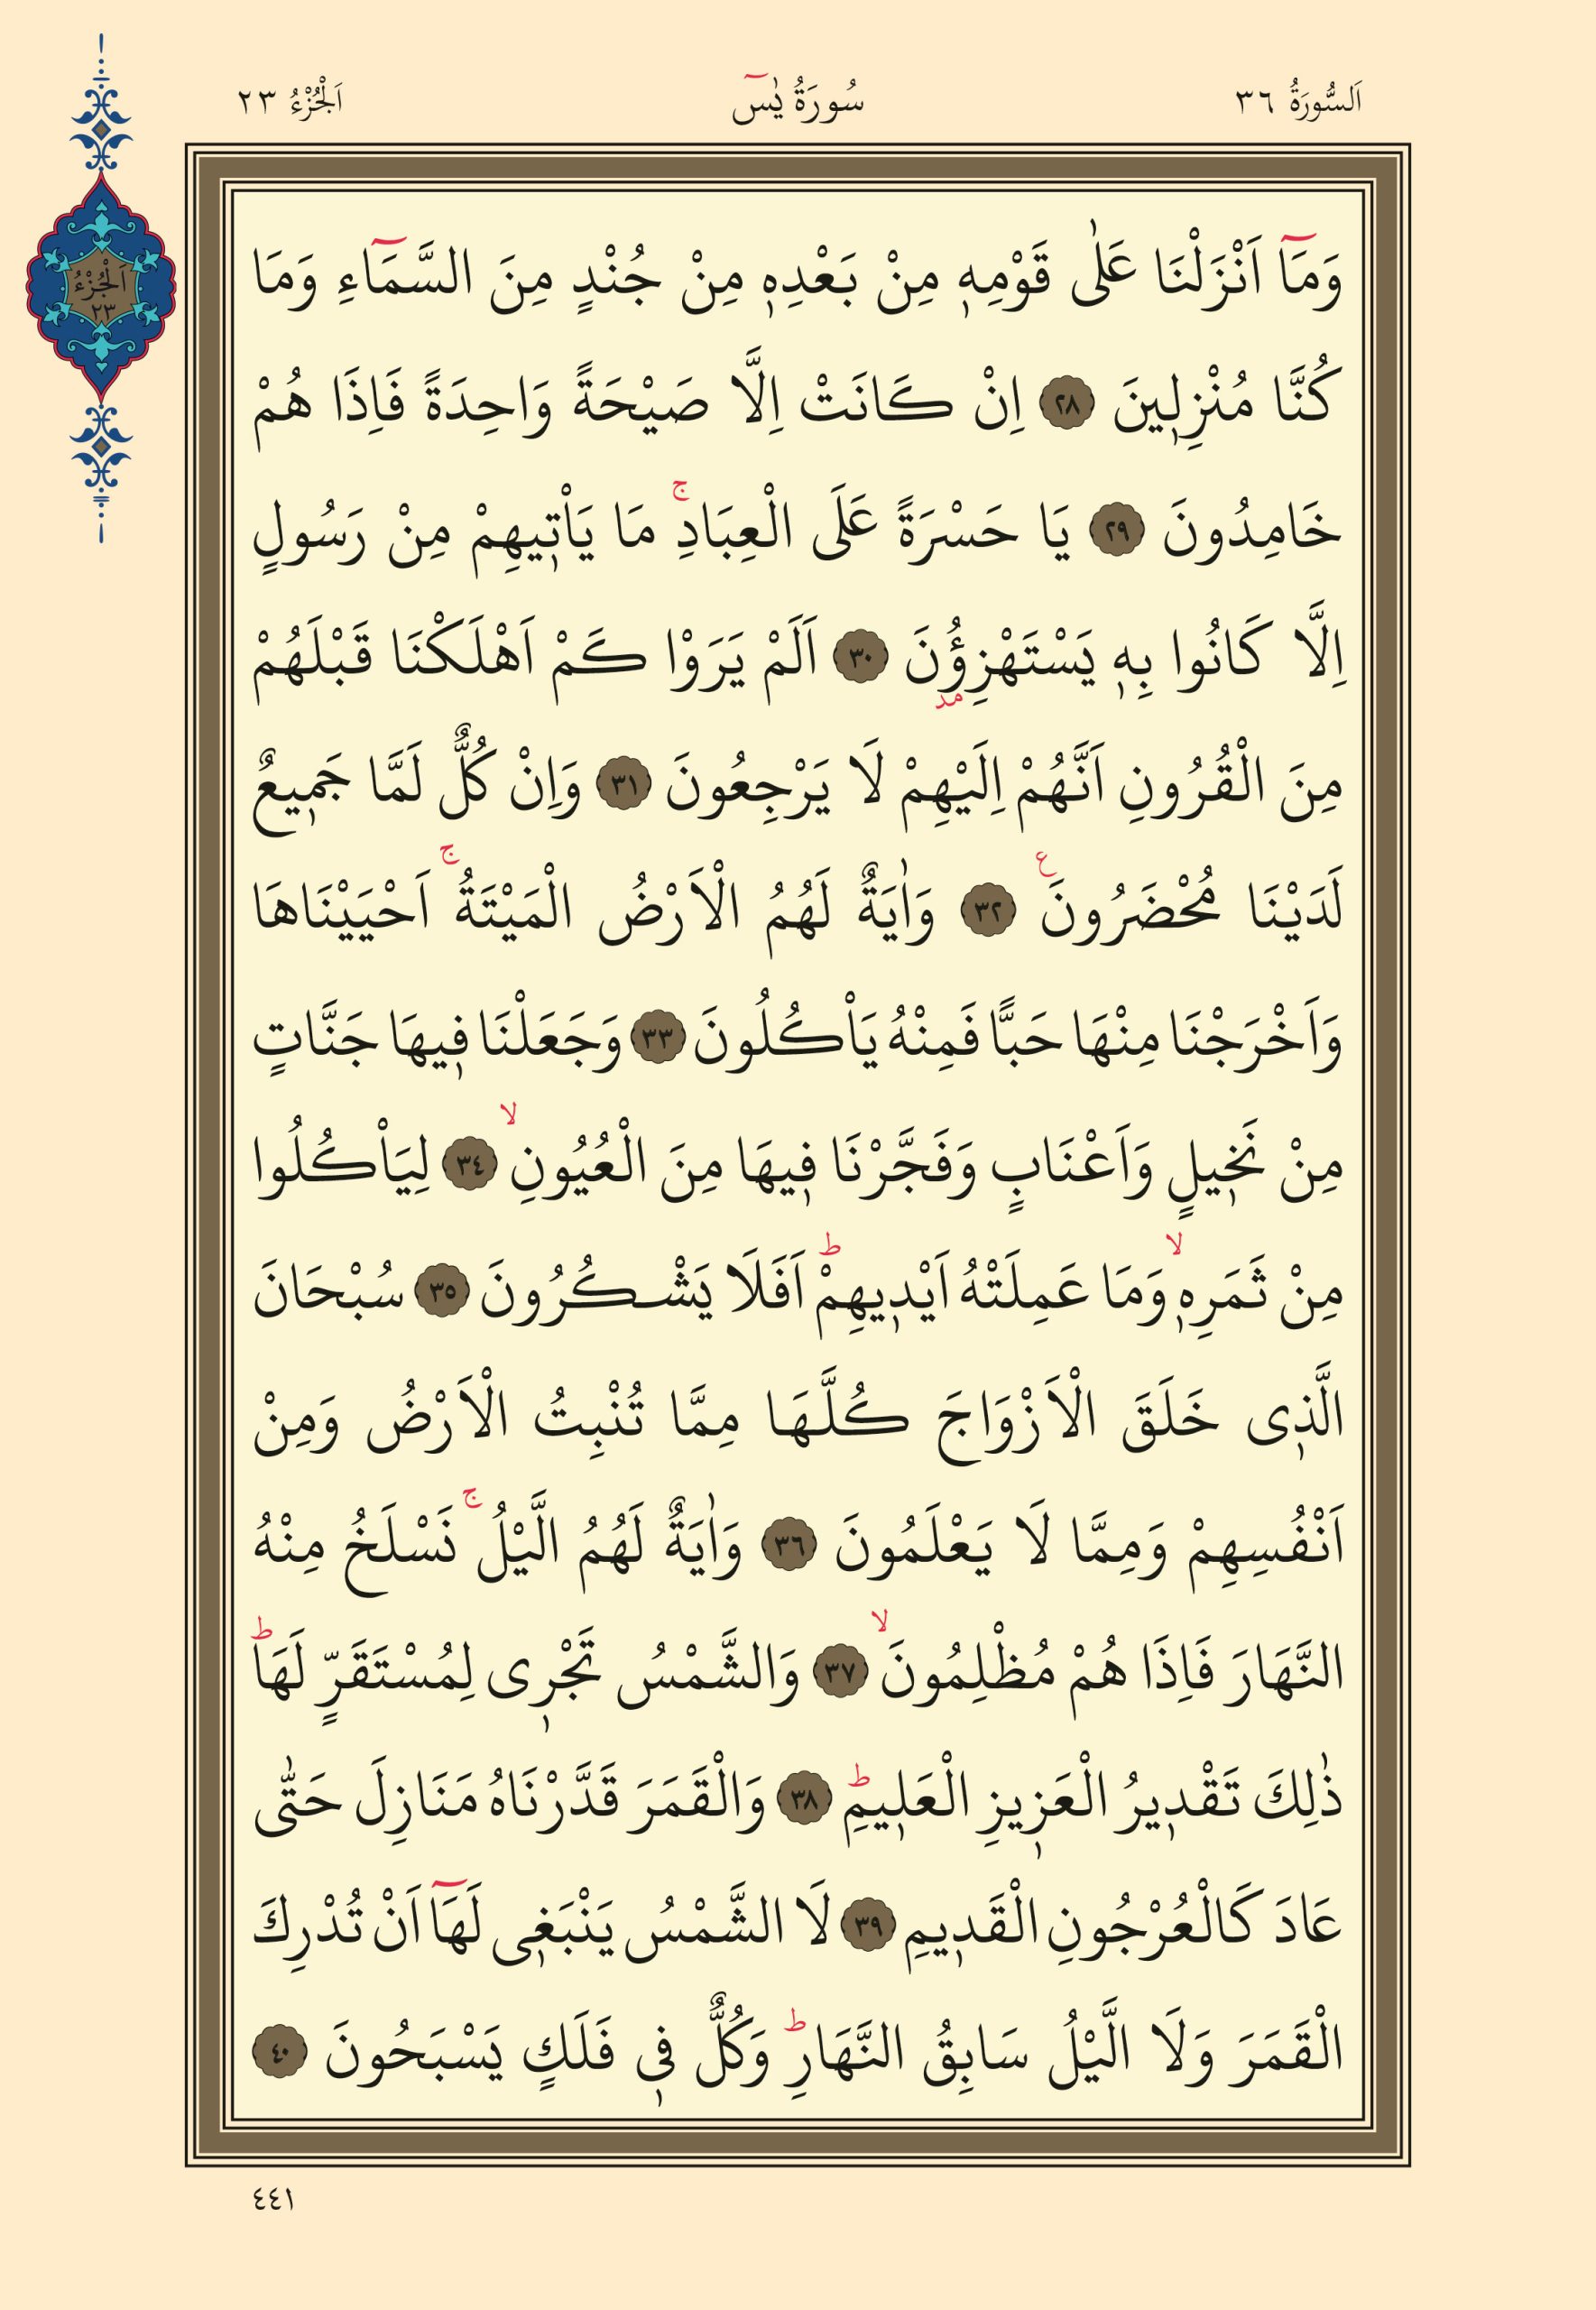 اَلسُّورَةُ ٣٦
سُورَةُ يٰسٓ
اَلْجُزْءُ ٢٣
اَلْجُزْءُ
٢٣
وَمَٓا اَنْزَلْنَا عَلٰى قَوْمِه۪ مِنْ بَعْدِه۪ مِنْ جُنْدٍ مِنَ السَّمَٓاءِ وَمَا
كُنَّا مُنْزِل۪ينَ ٢٨ اِنْ كَانَتْ اِلَّا صَيْحَةً وَاحِدَةً فَاِذَا هُمْ
خَامِدُونَ ٢٩ يَا حَسْرَةً عَلَى الْعِبَادِۚ مَا يَأْت۪يهِمْ مِنْ رَسُولٍ
اِلَّا كَانُوا بِه۪ يَسْتَهْزِؤُ۫نَ ٣٠ اَلَمْ يَرَوْا كَمْ اَهْلَكْنَا قَبْلَهُمْ
مِنَ الْقُرُونِ اَنَّهُمْ اِلَيْهِمْ لَا يَرْجِعُونَ ٣١ وَاِنْ كُلٌّ لَمَّا جَم۪يعٌ
لَدَيْنَا مُحْضَرُونَ۟ ٣٢ وَاٰيَةٌ لَهُمُ الْاَرْضُ الْمَيْتَةُۚ اَحْيَيْنَاهَا
وَاَخْرَجْنَا مِنْهَا حَبًّا فَمِنْهُ يَأْكُلُونَ ٣٣ وَجَعَلْنَا ف۪يهَا جَنَّاتٍ
مِنْ نَخ۪يلٍ وَاَعْنَابٍ وَفَجَّرْنَا ف۪يهَا مِنَ الْعُيُونِۙ ٣٤ لِيَأْكُلُوا
مِنْ ثَمَرِه۪ۙ وَمَا عَمِلَتْهُ اَيْد۪يهِمْۜ اَفَلَا يَشْكُرُونَ ٣٥ سُبْحَانَ
الَّذ۪ى خَلَقَ الْاَزْوَاجَ كُلَّهَا مِمَّا تُنْبِتُ الْاَرْضُ وَمِنْ
اَنْفُسِهِمْ وَمِمَّا لَا يَعْلَمُونَ ٣٦ وَاٰيَةٌ لَهُمُ الَّيْلُۚ نَسْلَخُ مِنْهُ
النَّهَارَ فَاِذَا هُمْ مُظْلِمُونَۙ ٣٧ وَالشَّمْسُ تَجْر۪ى لِمُسْتَقَرٍّ لَهَاۜ
ذٰلِكَ تَقْد۪يرُ الْعَز۪يزِ الْعَل۪يمِۜ ٣٨ وَالْقَمَرَ قَدَّرْنَاهُ مَنَازِلَ حَتّٰى
عَادَ كَالْعُرْجُونِ الْقَد۪يمِ ٣٩ لَا الشَّمْسُ يَنْبَغ۪ى لَهَٓا اَنْ تُدْرِكَ
الْقَمَرَ وَلَا الَّيْلُ سَابِقُ النَّهَارِۜ وَكُلٌّ ف۪ى فَلَكٍ يَسْبَحُونَ ٤٠
٤٤١